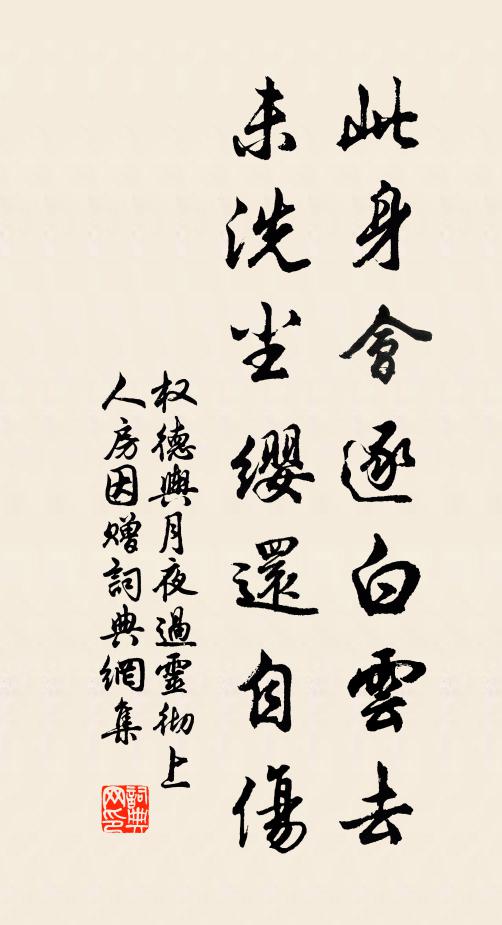 此身會逐白雲去
未洗尘纓還自傷
权德輿月夜過靈彻上
人房因贈詞典網集
詞典网印